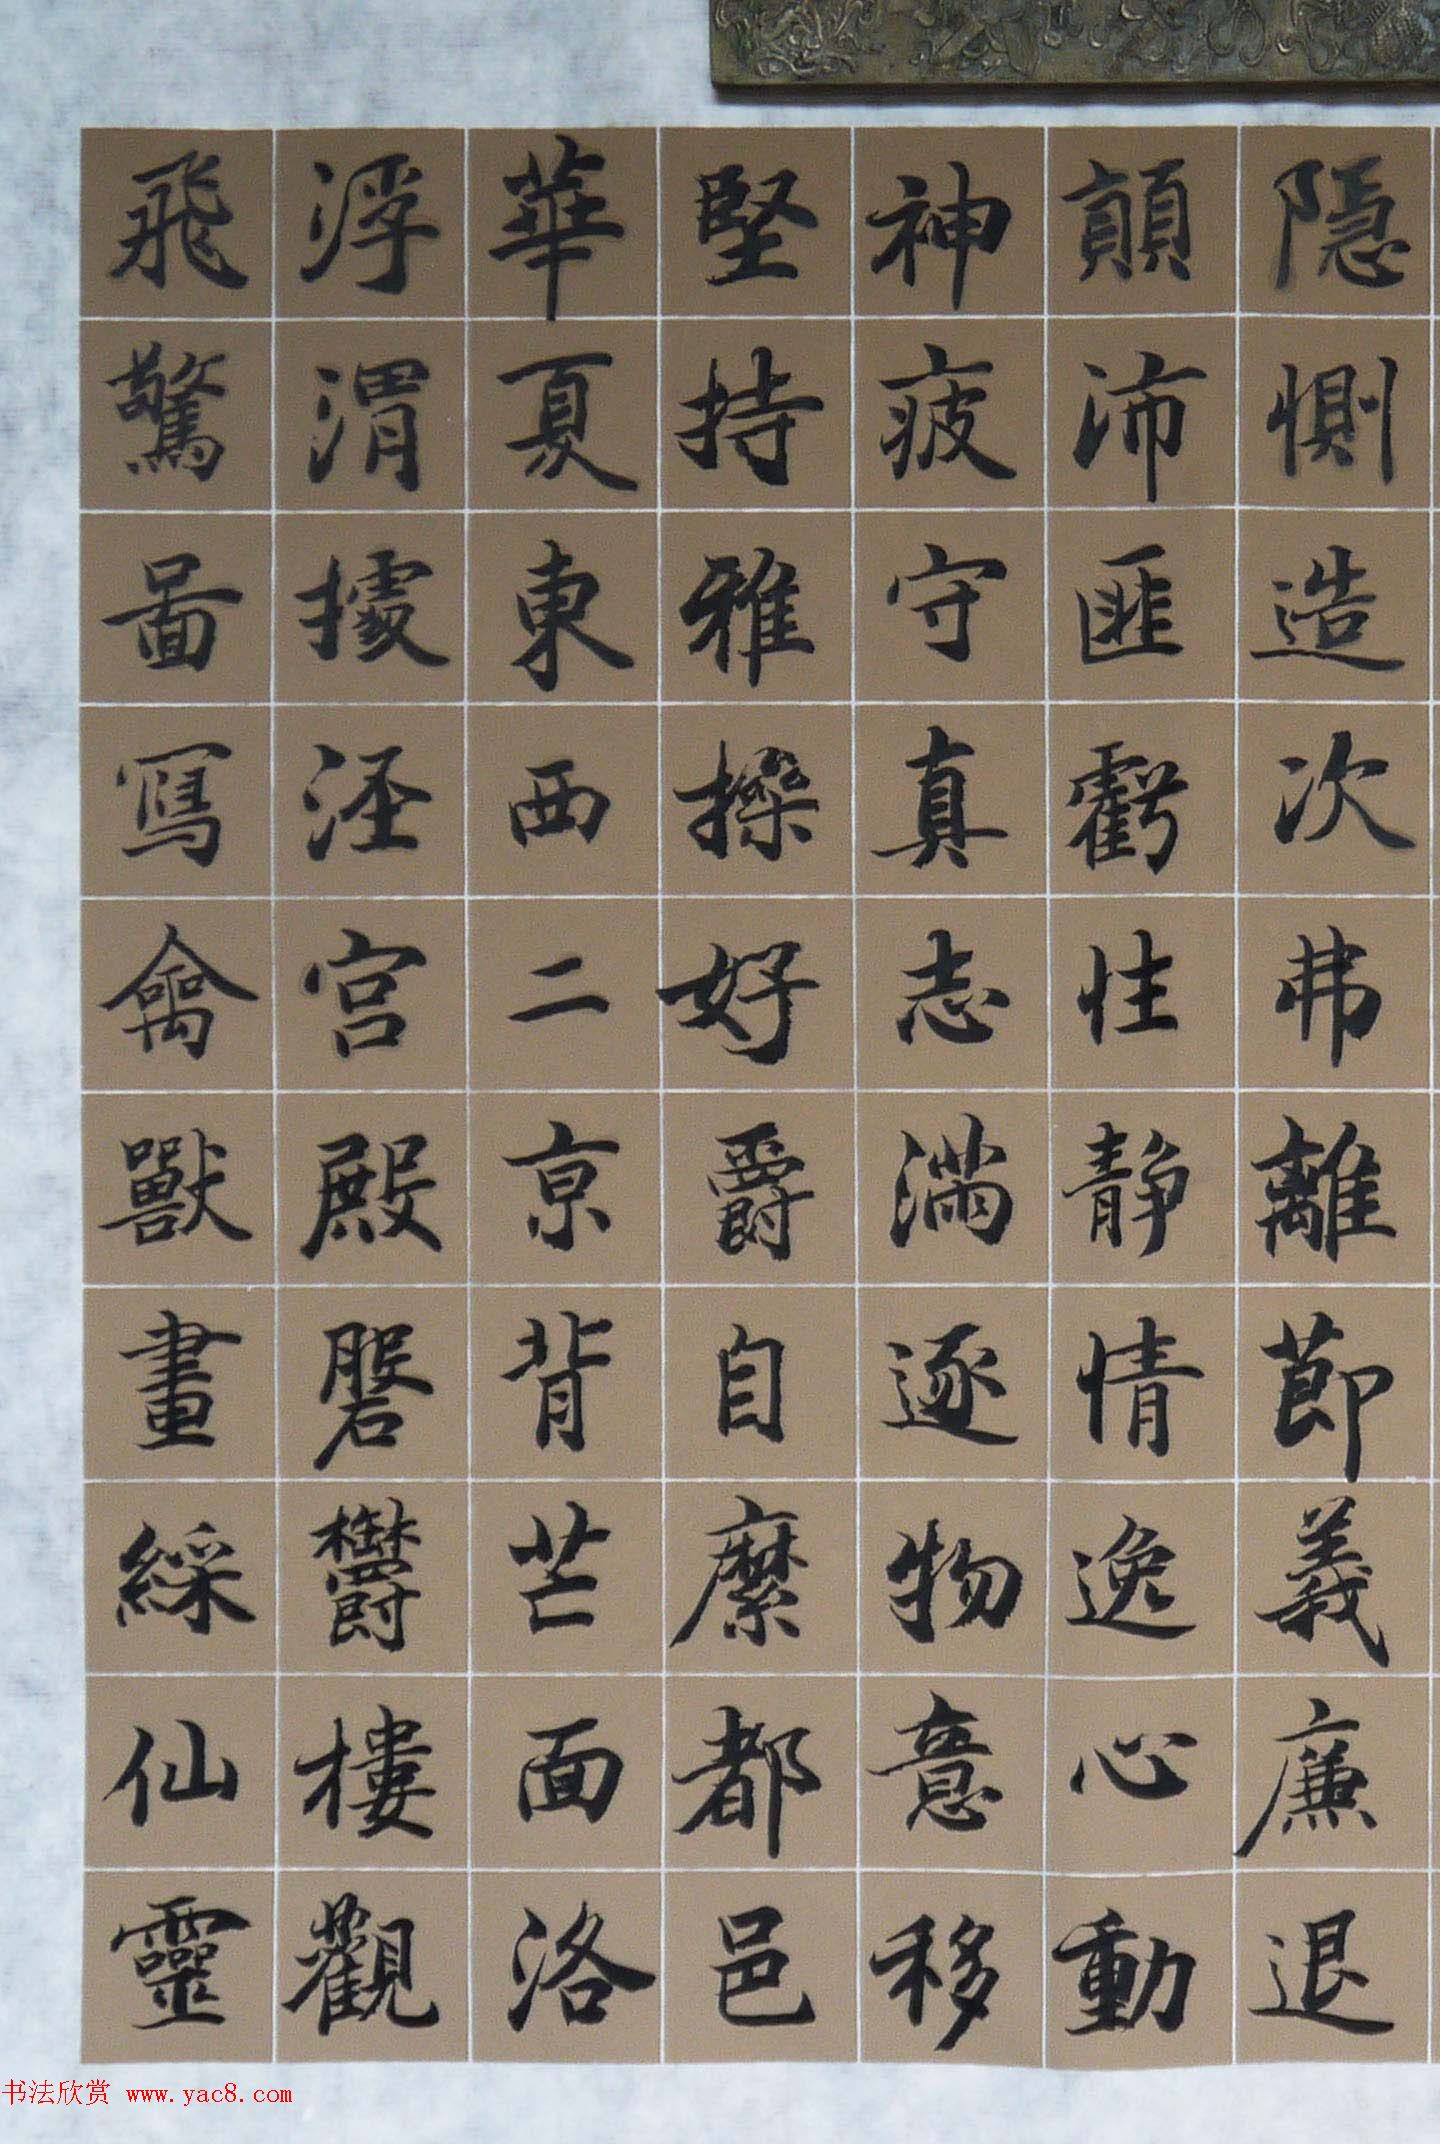 隱惻造次弗離節義廉退
顛沛匪虧性静情逸心動
神疲守真志滿逐物意移
堅持雅操好爵自縻都邑
華夏東西二京背芒面洛
浮渭據涇宮殿磐鬱樓觀
飛驚啚寫禽獸畫綵仙靈
书法欣赏 www.yac8.com